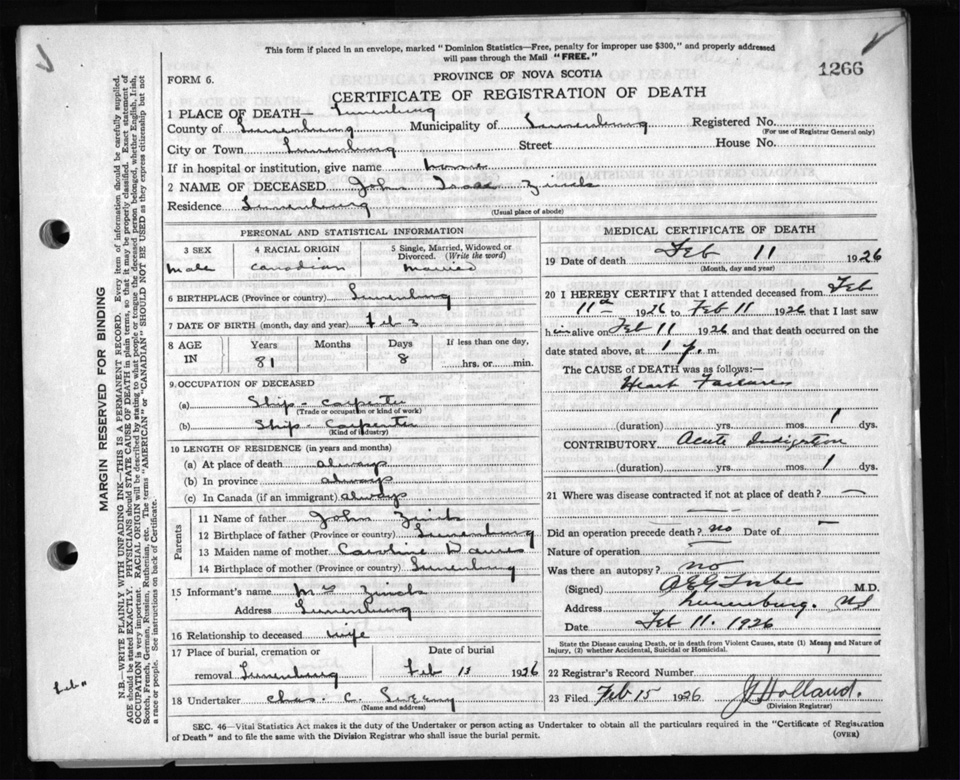 This form if placed in an envelope, marked "Dominion Statistics—Free, penalty for improper use $300," and properly addressed
will pass through the Mail "FREE."
1266
FORM 6.
PROVINCE OF NOVA SCOTIA
CERTIFICATE OF REGISTRATION OF DEATH
1 PLACE OF DEATH— Lunenburg
County of Lunenburg Municipality of Lunenburg Registered No.
(For use of Registrar General only)
City or Town Lunenburg Street House No.
If in hospital or institution, give name home
2 NAME OF DECEASED John Isaac Zinck
Residence Lunenburg
(Usual place of abode)
PERSONAL AND STATISTICAL INFORMATION
3 SEX 4 RACIAL ORIGIN 5 Single, Married, Widowed or
Divorced. (Write the word)
Male Canadian Married
6 BIRTHPLACE (Province or country) Lunenburg
7 DATE OF BIRTH (month, day and year) Feb 3
8 AGE IN Years Months Days If less than one day,
81 8 hrs. or min.
9. OCCUPATION OF DECEASED
(a) Ship-Carpenter
(Trade or occupation or kind of work)
(b) Ship-Carpenter
(Kind of industry)
10 LENGTH OF RESIDENCE (in years and months)
(a) At place of death always
(b) In province always
(c) In Canada (if an immigrant) always
Parents
11 Name of father John Zinck
12 Birthplace of father (Province or country) Lunenburg
13 Maiden name of mother Caroline
14 Birthplace of mother (Province or country) Lunenburg
15 Informant's name Mrs Zinck
Address Lunenburg
16 Relationship to deceased wife
17 Place of burial, cremation or Date of burial
removal Lunenburg Feb 13 1926
18 Undertaker Chas. C.
(Name and address)
MEDICAL CERTIFICATE OF DEATH
19 Date of death Feb 11 1926
(Month, day and year)
20 I HEREBY CERTIFY that I attended deceased from Feb
11th 1926 to Feb 11 1926 that I last saw
him alive on Feb 11 1926 and that death occurred on
date stated above, at 1 p. m.
The CAUSE of DEATH was as follows:—
Heart Failure
(duration) yrs. mos. 1 dys.
CONTRIBUTORY Acute Indigestion
(duration) yrs. mos. 1 dys.
21 Where was disease contracted if not at place of death? —
Did an operation precede death? no Date of —
Nature of operation
Was there an autopsy? no
(Signed) M.D.
Address Lunenburg. NS
Date Feb 11. 1926
State the Disease causing Death, or in death from Violent Causes, state (1) Means and Nature of
Injury, (2) whether Accidental, Suicidal or Homicidal.
22 Registrar's Record Number
23 Filed Feb 15 1926 Holland.
(Division Registrar)
SEC. 46—Vital Statistics Act makes it the duty of the Undertaker or person acting as Undertaker to obtain all the particulars required in the "Certificate of Registration
of Death" and to file the same with the Division Registrar who shall issue the burial permit.
(OVER)
MARGIN RESERVED FOR BINDING
N.B.—WRITE PLAINLY WITH UNFADING INK—THIS IS A PERMANENT RECORD. Every item of information should be carefully supplied.
AGE should be stated EXACTLY. PHYSICIANS should STATE CAUSE OF DEATH in plain terms, so that it may be properly classified. Exact statement of
OCCUPATION is very important. RACIAL ORIGIN will be described by stating to what people or tongue the deceased person belonged, whether English, Irish,
Scotch, French, German, Russian, Ruthenian, etc. The terms "AMERICAN" or "CANADIAN" SHOULD NOT BE USED as they express citizenship but not
a race or people. See instructions on back of Certificate.